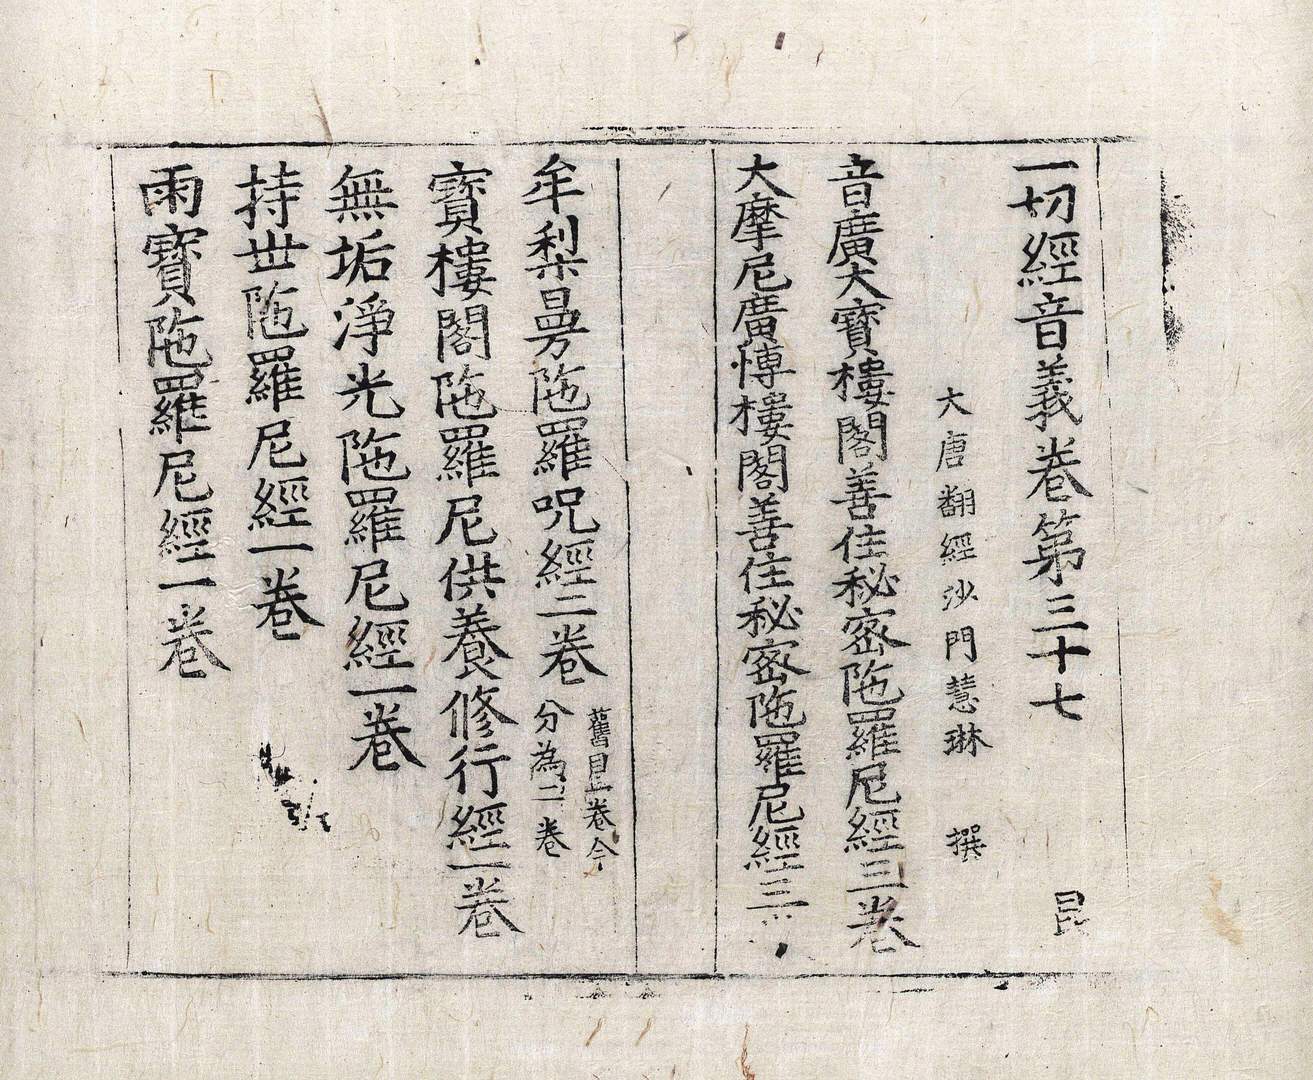 一切經音義卷第三十七 昆
大唐翻經沙門慧琳 撰
音廣大寶樓閣善住秘密陁羅尼經三卷
大摩尼廣愽樓閣善住秘密陁羅尼經三
牟梨曼陁羅呪經二卷
舊是一卷今
分為二卷
寶樓閣陁羅尼供養修行經一卷
無垢淨光陁羅尼經一卷
持世陁羅尼經一卷
雨寶陁羅尼經一卷